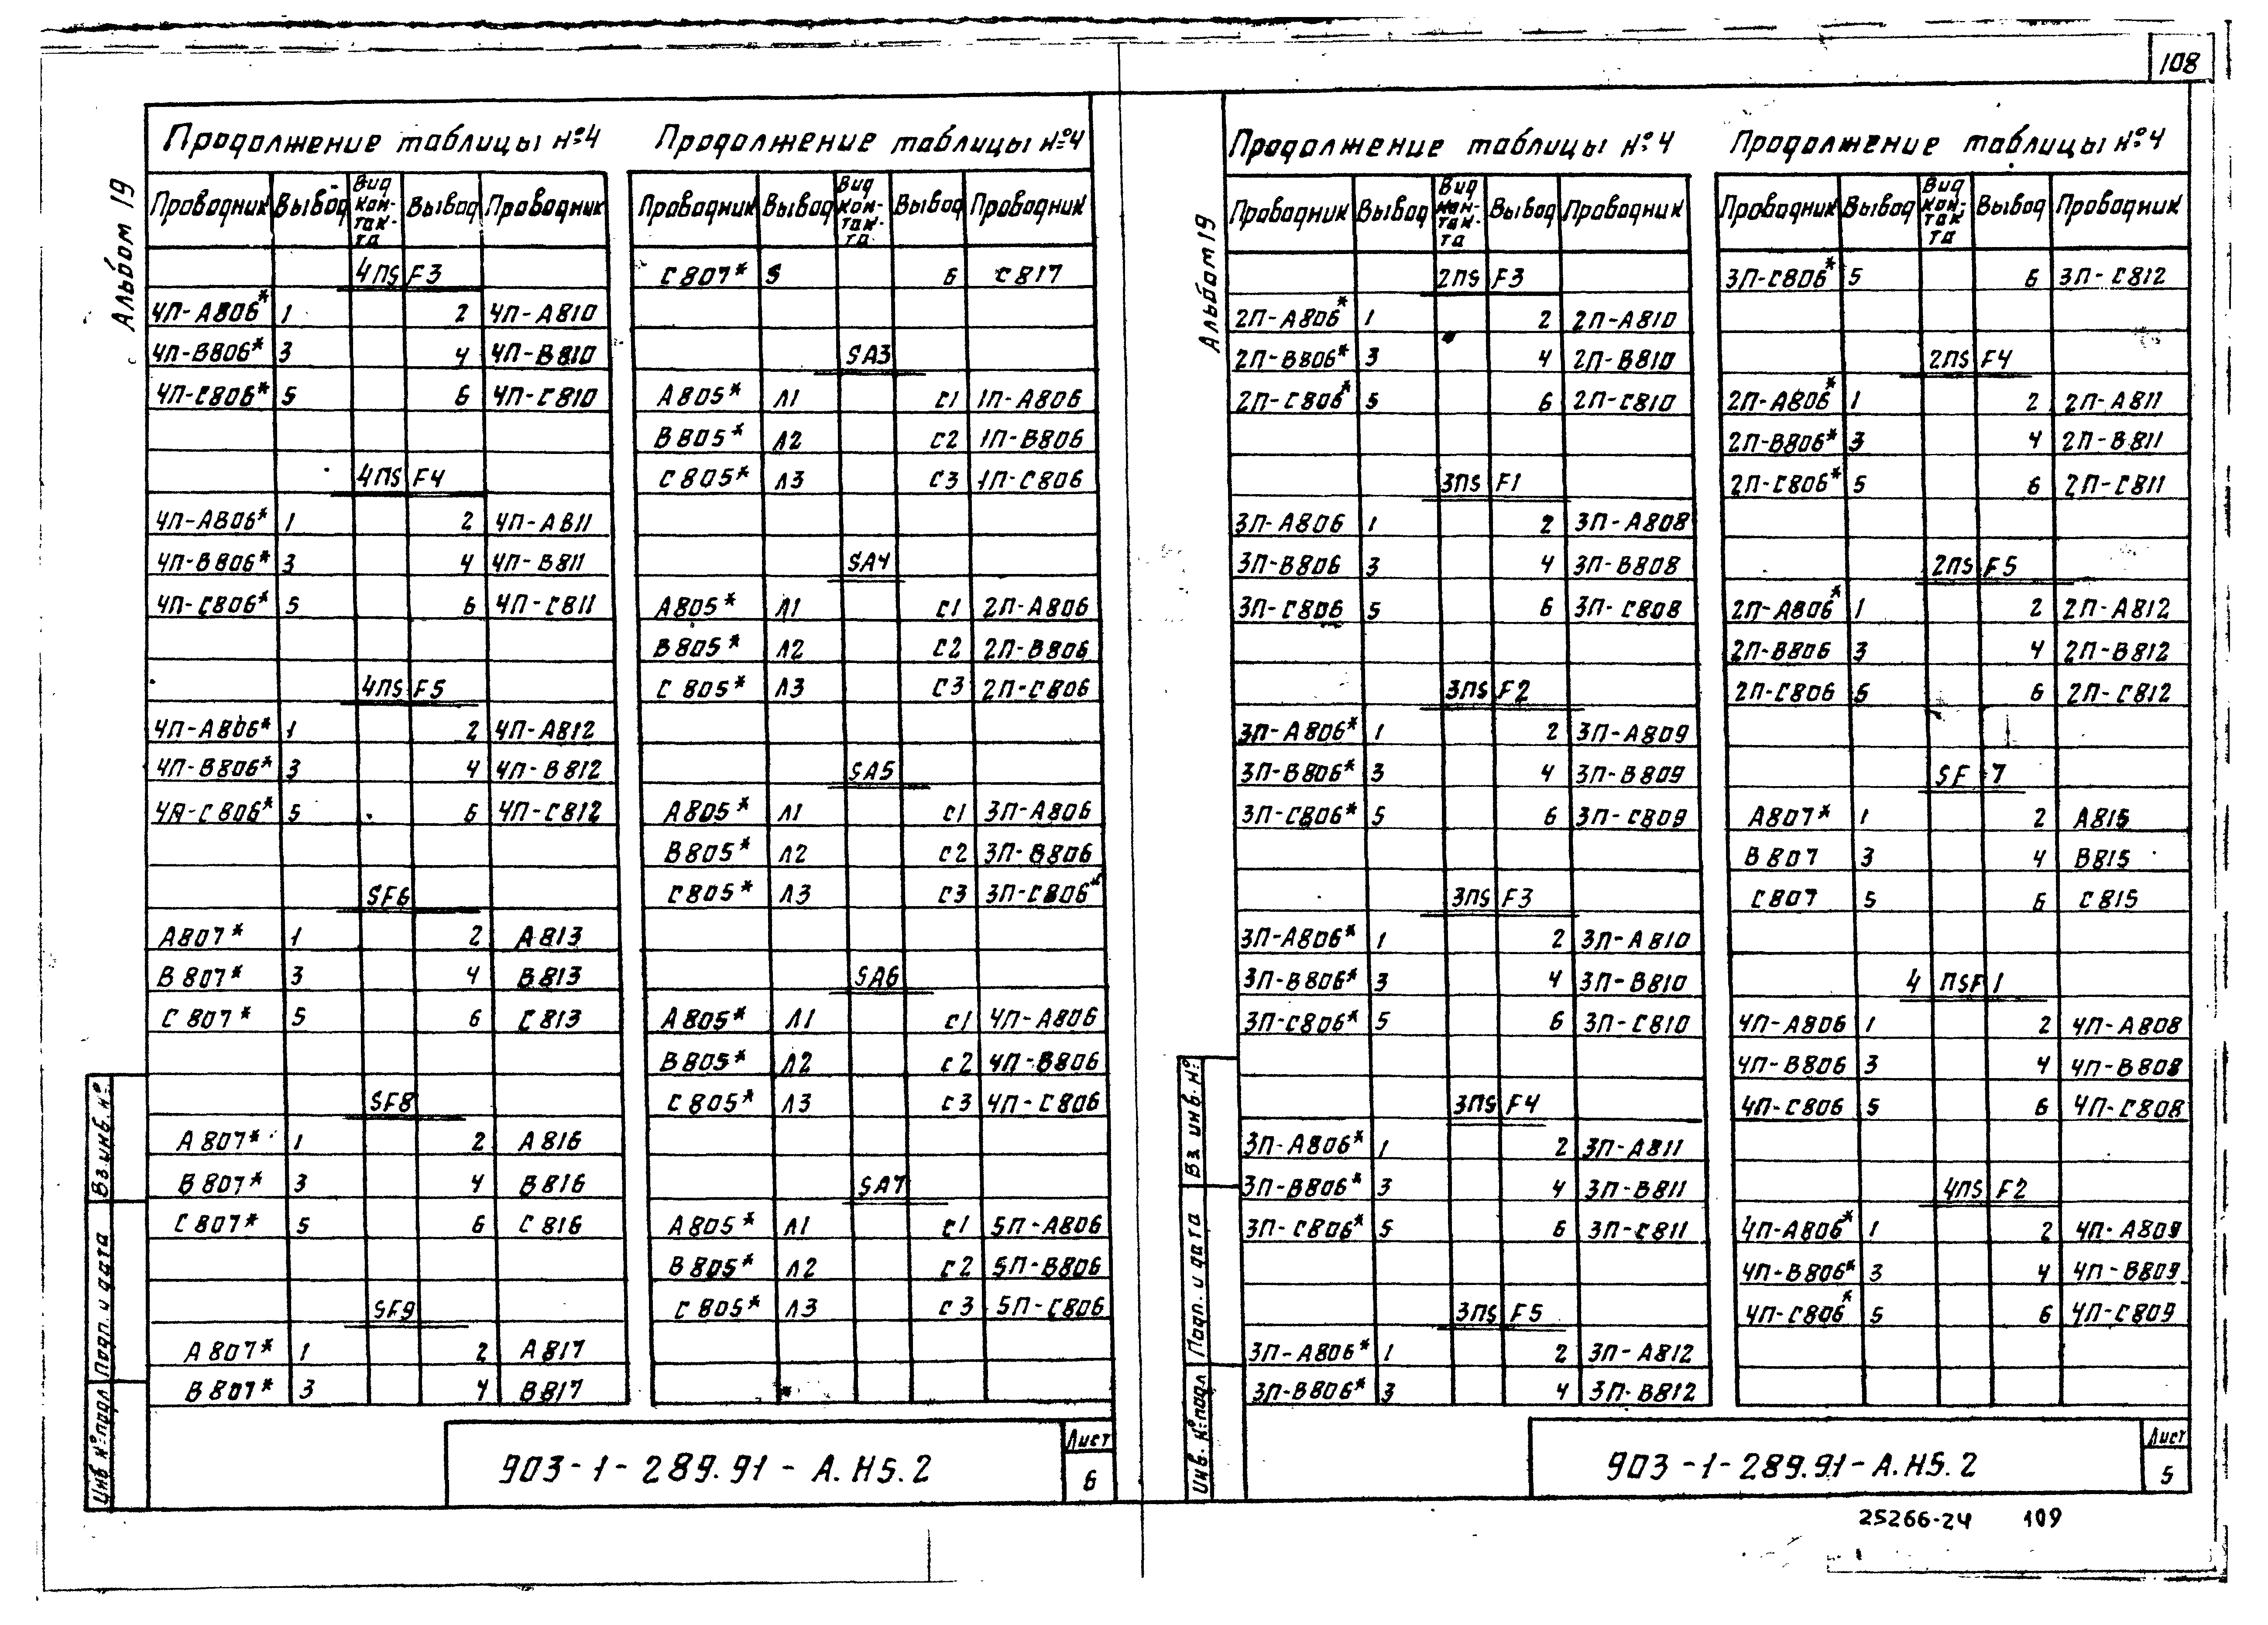 108
Альбом 19
Продолжение таблицы №4
Проводник Вывод Вид кон-так-та Вывод Проводник
4ПS F3
4П-А806* 1 2 4П-А810
4П-В806* 3 4 4П-В810
4П-С806* 5 6 4П-С810
4ПS F4
4П-А806* 1 2 4П-А811
4П-В806* 3 4 4П-В811
4П-С806* 5 6 4П-С811
4ПS F5
4П-А806* 1 2 4П-А812
4П-В806* 3 4 4П-В812
4П-С806* 5 6 4П-С812
SF6
А807* 1 2 А813
В807* 3 4 В813
С807* 5 6 С813
SF8
А807* 1 2 А816
В807* 3 4 В816
С807* 5 6 С816
SF9
А807* 1 2 А817
В807* 3 4 В817
Продолжение таблицы №4
Проводник Вывод Вид кон-так-та Вывод Проводник
С807* 5 6 С817
SA3
А805* Л1 С1 1П-А806
В805* Л2 С2 1П-В806
С805* Л3 С3 1П-С806
SA4
А805* Л1 С1 2П-А806
В805* Л2 С2 2П-В806
С805* Л3 С3 2П-С806
SA5
А805* Л1 С1 3П-А806
В805* Л2 С2 3П-В806
С805* Л3 С3 3П-С806*
SA6
А805* Л1 С1 4П-А806
В805* Л2 С2 4П-В806
С805* Л3 С3 4П-С806
SA7
А805* Л1 С1 5П-А806
В805* Л2 С2 5П-В806
С805* Л3 С3 5П-С806
Вз.инв.№
Подп. и дата
Инв №подл
903-1-289.91-А.Н5.2
Лист
6
Альбом 19
Продолжение таблицы №4
Проводник Вывод Вид кон-так-та Вывод Проводник
2ПS F3
2П-А806* 1 2 2П-А810
2П-В806* 3 4 2П-В810
2П-С806* 5 6 2П-С810
3ПS F1
3П-А806 1 2 3П-А808
3П-В806 3 4 3П-В808
3П-С806 5 6 3П-С808
3ПS F2
3П-А806* 1 2 3П-А809
3П-В806* 3 4 3П-В809
3П-С806* 5 6 3П-С809
3ПS F3
3П-А806* 1 2 3П-А810
3П-В806* 3 4 3П-В810
3П-С806* 5 6 3П-С810
3ПS F4
3П-А806* 1 2 3П-А811
3П-В806* 3 4 3П-В811
3П-С806* 5 6 3П-С811
3ПS F5
3П-А806* 1 2 3П-А812
3П-В806* 3 4 3П-В812
Продолжение таблицы №4
Проводник Вывод Вид кон-так-та Вывод Проводник
3П-С806* 5 6 3П-С812
2ПS F4
2П-А806* 1 2 2П-А811
2П-В806* 3 4 2П-В811
2П-С806* 5 6 2П-С811
2ПS F5
2П-А806* 1 2 2П-А812
2П-В806 3 4 2П-В812
2П-С806 5 6 2П-С812
SF 7
А807* 1 2 А815
В807 3 4 В815
С807 5 6 С815
4 ПSF 1
4П-А806 1 2 4П-А808
4П-В806 3 4 4П-В808
4П-С806 5 6 4П-С808
4ПS F2
4П-А806* 1 2 4П-А809
4П-В806* 3 4 4П-В809
4П-С806* 5 6 4П-С809
Вз. инв.№
Подп. и дата
Инв. №подл
903-1-289.91-А.Н5.2
Лист
5
25266-24 109